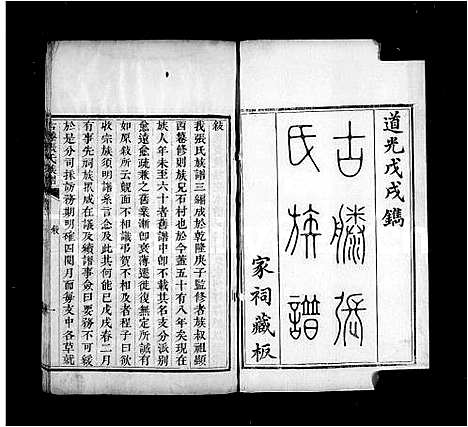 道光戊戌鐫
古滕張
氏族譜
家祠藏板
敍
我張氏族譜三編成於乾隆庚子監修者族叔祖顯
西纂修則族兄石村也於今蓋五十有八年矣現在
族人年未至六十者舊譜中俱不載其名支分派別
愈遠愈疏兼之舊業漸卽衰薄遷徙復無定所誠有
如原敍所云覿面不相識弔賀不相及者程子曰欲
收宗族須明譜系言念及此能無戚已戊戌春二月
有事先祠族眾咸在議及續譜事僉曰要務不可緩
於是分司採訪務期明確四閱月而每支中各草就
敍
一